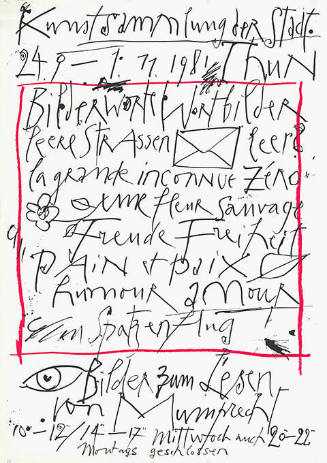 Kunstsammlung der Stadt
24.9 – 1.11.1981 Thun
Bilderworte Wortbilder
leere Strassen leere
la grande inconnue Zéro
une fleur sauvage
Freude Freiheit
PAiN et paix
humour amour
Spatzenflug
Bilder zum Lesen
von Mumprecht
10–12/14–17 Mittwoch auch 20–22
Montags geschlossen